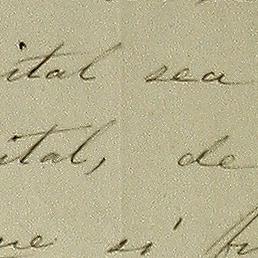 ital sea
ital, de
ue si